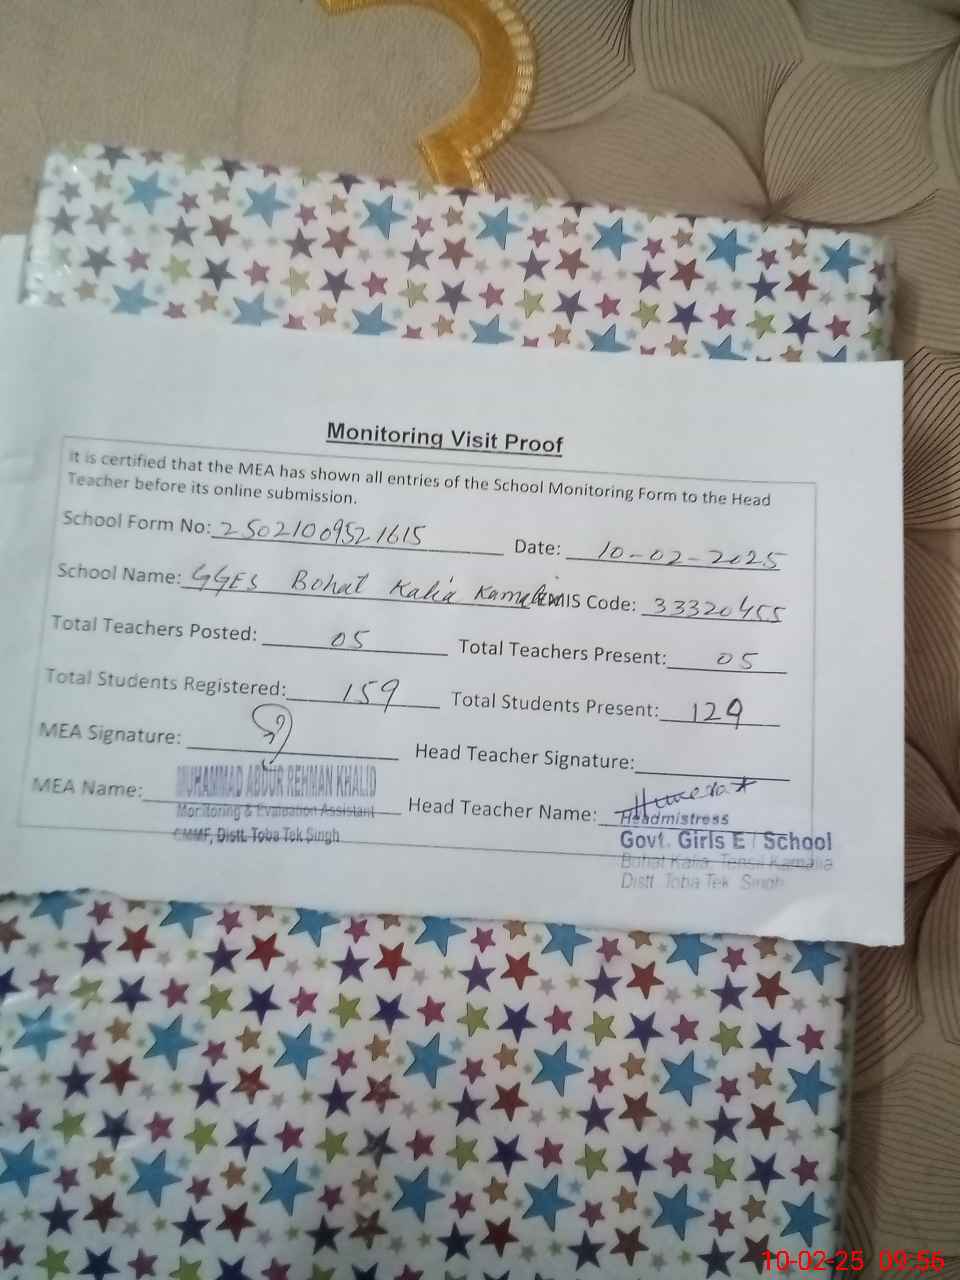 Monitoring Visit Proof
It is certified that the MEA has shown all entries of the School Monitoring Form to the Head
Teacher before its online submission.
School Form No: 2502100952 1615 Date: 10-02-2025
School Name: GGES Bohat Kalia Kamalia EMIS Code: 33320455
Total Teachers Posted: 05 Total Teachers Present: 05
Total Students Registered: 159 Total Students Present: 129
MEA Signature: Head Teacher Signature:
MEA Name: MUHAMMAD ABDUR REHMAN KHALID Head Teacher Name:
Monitoring & Evaluation Assistant
CMMF, Distt. Toba Tek Singh
Headmistress
Govt. Girls E / School
Bohat Kalia, Tehsil Kamalia
Distt. Toba Tek Singh
10-02-25 09:56